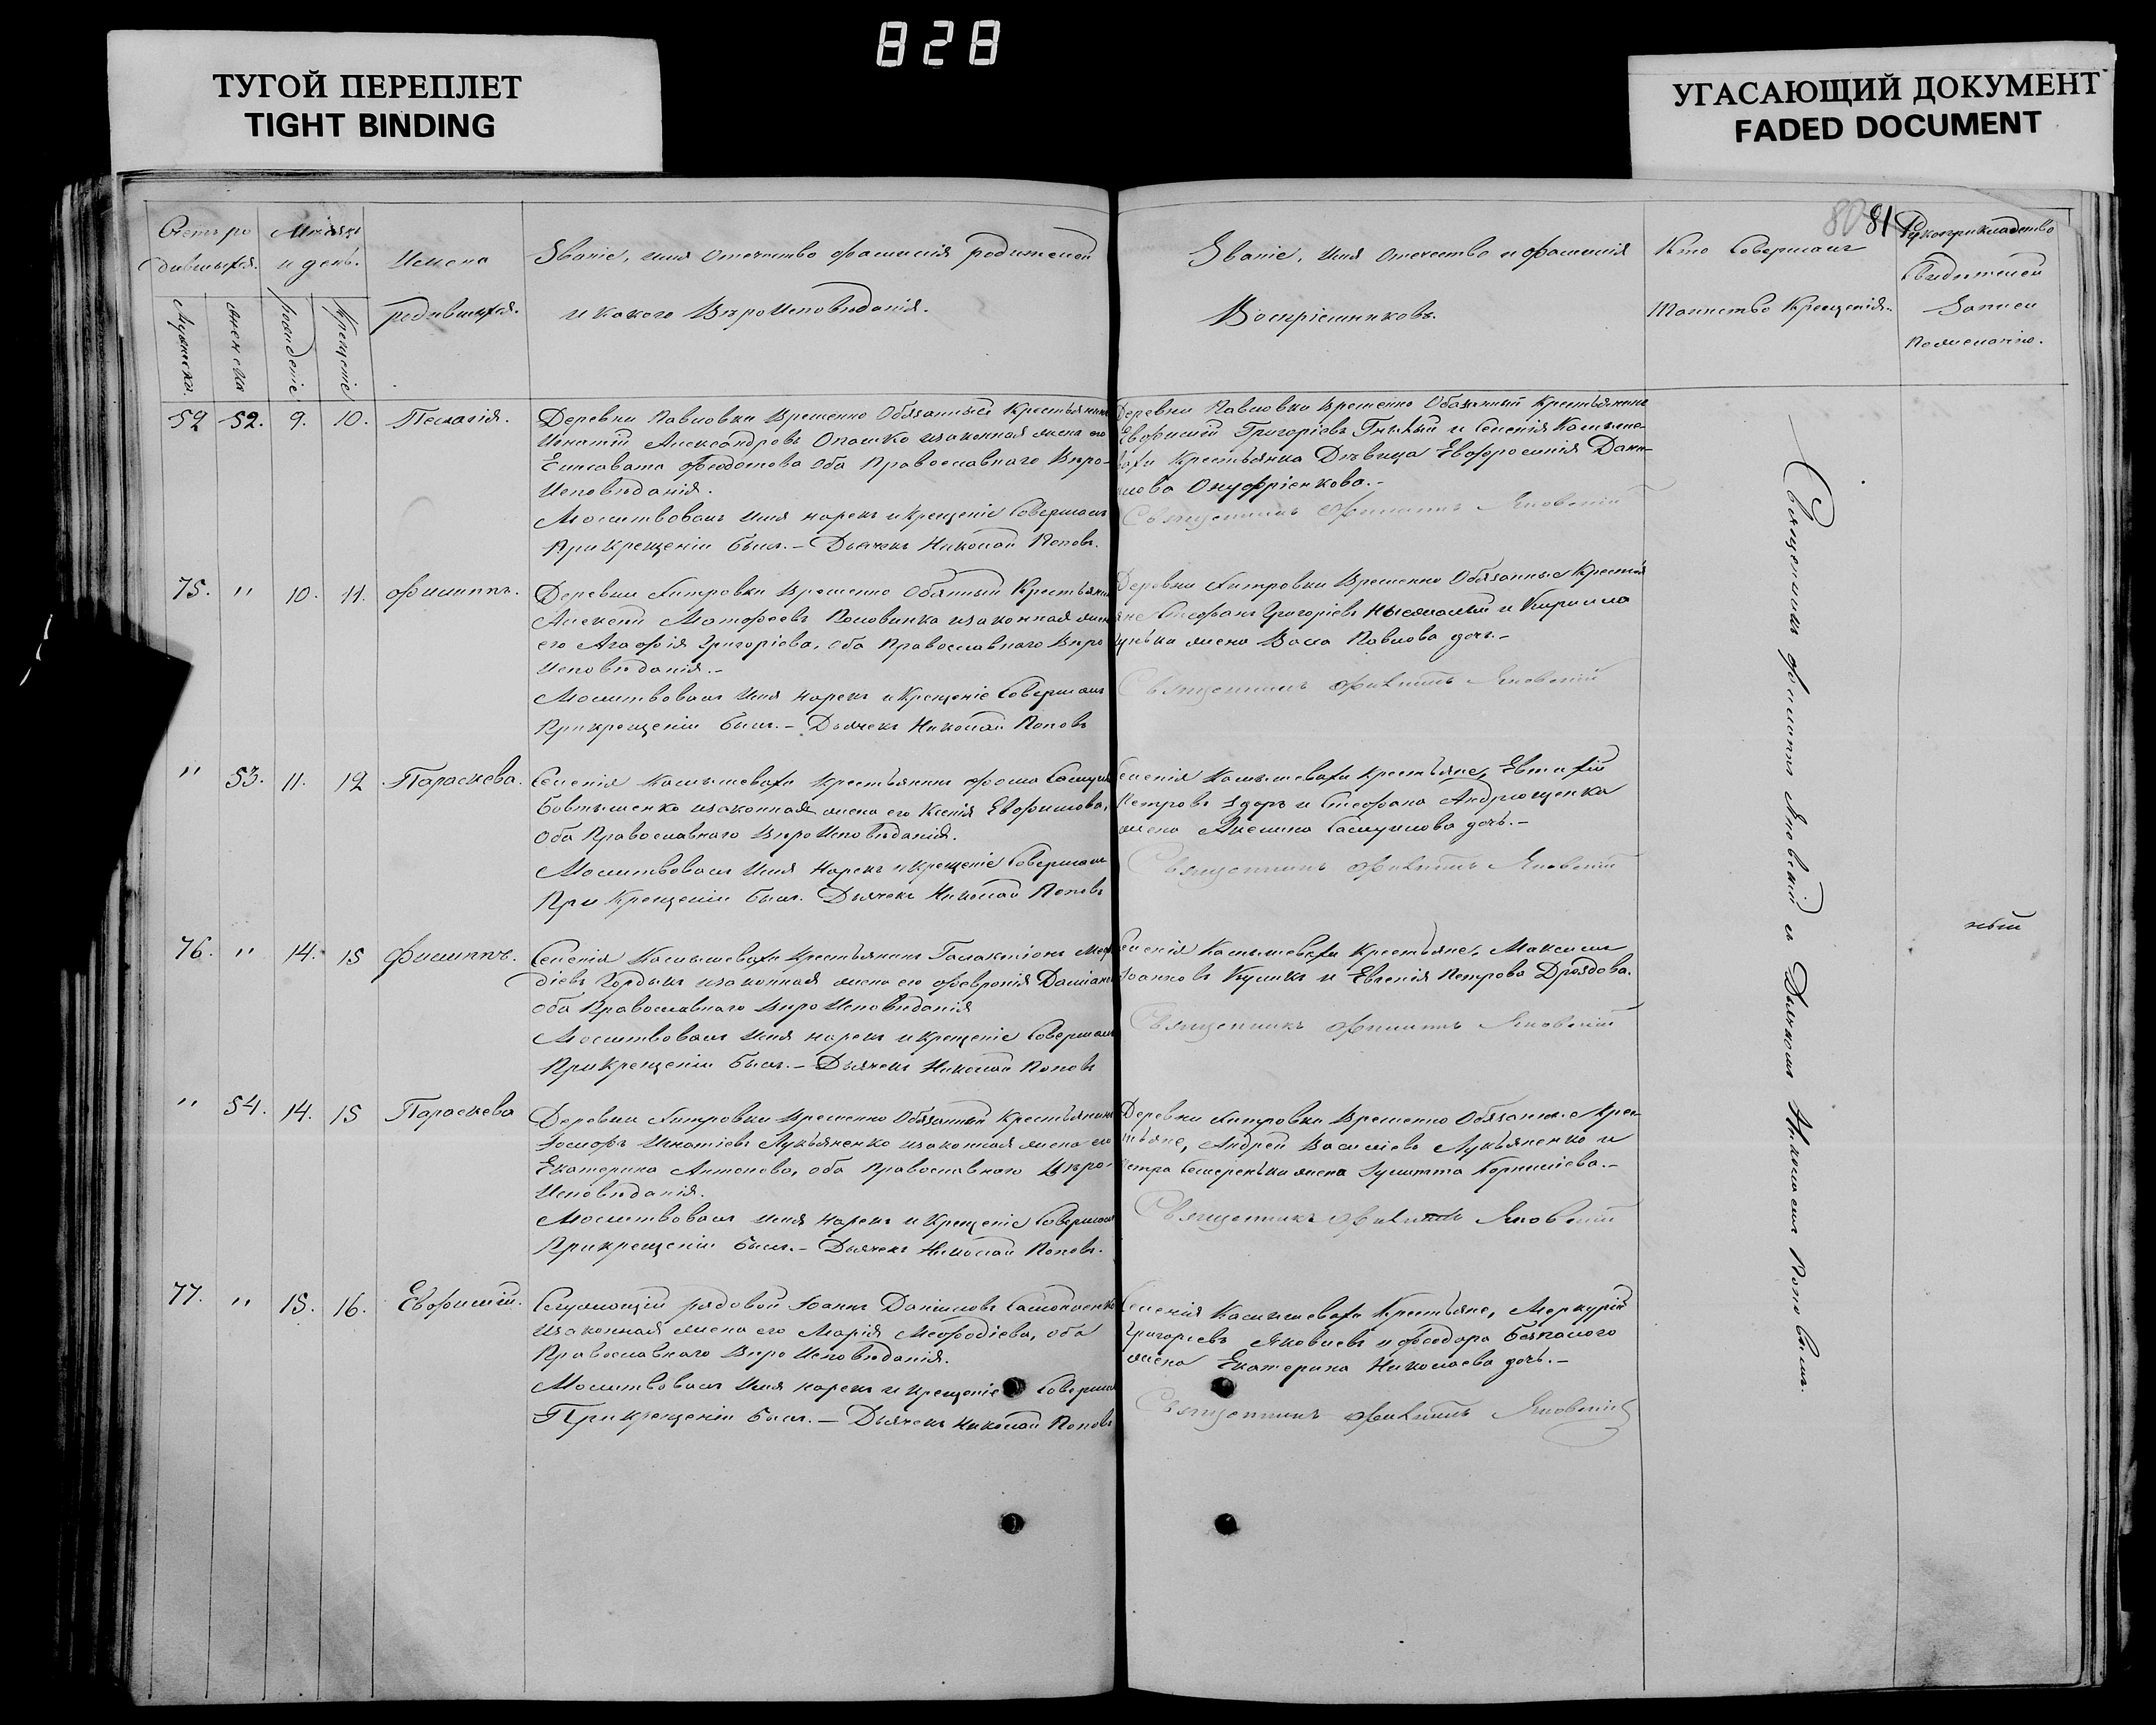 828
ТУГОЙ ПЕРЕПЛЕТ
TIGHT BINDING
УГАСАЮЩИЙ ДОКУМЕНТ
FADED DOCUMENT
80 81
Счетъ ро
дившихся.
Мѣсяцъ
и день.
Имена
родившихся.
Званіе, имя отечество фамилія родителей
и какого Вѣроисповѣданія.
Мужеска.
женска
рожденіе
Крещеніе
Званіе, имя отечество и фамилія
Воспріемниковъ.
Кто совершалъ
Таинство Крещенія.
Рукоприкладство
Свидетелей
Записи
по желанію.
52 52. 9. 10. Пелагія.
Деревни Павловки Временно Обязанный Крестьянинъ
Игнатій Александровъ Опашко и законная жена его
Елисавета Феодотова Оба Православнаго Вѣро-
исповѣданія.
Молитвовалъ имя нарекъ и крещеніе Совершалъ
При крещеніи былъ. – Дьячекъ Николай Поповъ.
Деревни Павловки Временно Обязанный Крестьянинъ
Евфимій Григоріевъ и Селенія Камыше-
вахи Крестьянка Дѣвица Евфросинія Дани-
лова Онуфріенкова. –
Священникъ Филиппъ Яновскій
75. " 10. 11. Филиппъ.
Деревни Хитровки Временно Обязанный Крестьянинъ
Алексѣй Матфеевъ Половинка и законная жена
его Агафія Григоріева, оба Православнаго Вѣро
исповѣданія. –
Молитвовалъ имя нарекъ и Крещеніе Совершалъ
При крещеніи былъ. – Дьячекъ Николай Поповъ
Деревни Хитровки Временно Обязанные Крестья
яне Стефанъ Григоріевъ и Кирилла
жена Васса Павлова дочь. –
Священникъ Филиппъ Яновскій
" 53. 11. 12 Параскева.
Селенія Камышевахи Крестьянинъ Фома Самуил
Бовтышенко и законная жена его Ксенія Евфимова,
Оба Православнаго Вѣроисповѣданія.
Молитвовалъ имя Нарекъ и Крещеніе Совершалъ
При Крещеніи былъ. Дьячекъ Николай Поповъ
Селенія Камышевахи Крестьяне, Евтихій
Петровъ Здоръ и Стефана Андрющенка
жена Акелина Самуилова дочь. –
Священникъ Филиппъ Яновскій
76. " 14. 15 Филиппъ.
Селенія Камышевахи Крестьянинъ Галактіонъ
діевъ Гордыхъ и законная жена его Февронія Даміан
оба Православнаго Вѣроисповѣданія
Молитвовалъ имя нарекъ и крещеніе Совершалъ
При Крещеніи былъ. – Дьячекъ Николай Поповъ
Селенія Камышевахи Крестьяне, Максимъ
Іоанновъ Куликъ и Евгенія Петрова Дроздова.
Священникъ Филиппъ Яновскій
ный
" 54. 14. 15 Параскева
Деревни Хитровки Временно Обязанный Крестьянинъ
Іосифъ Игнатіевъ Лукьяненко и законная жена его
Екатерина Антонова, оба Православнаго Вѣро-
исповѣданія.
Молитвовалъ имя нарекъ и Крещеніе Совершалъ
При крещеніи былъ. – Дьячекъ Николай Поповъ.
Деревни Хитровки Временно Обязанные Крес-
тьяне, Андрей Василіевъ Лукьяненко и
Петра жена Іулитта Корниліева. –
Священникъ Филиппъ Яновскій
77. " 15. 16. Евфимій.
Служащій рядовой Іоаннъ Даниловъ Самопаленко
и законная жена его Марія Мефодіева, оба
Православнаго Вѣроисповѣданія.
Молитвовалъ имя нарекъ и крещеніе Соверша
При крещеніи былъ. – Дьячекъ Николай Поповъ
Селенія Камышевахи Крестьяне, Меркурій
Григоріевъ Яковлевъ и Феодора Безпалого
жена Екатерина Николаева дочь. –
Священникъ Филиппъ Яновскій
Священникъ Филиппъ Яновскій съ Дьячкомъ Николаемъ Поповымъ.